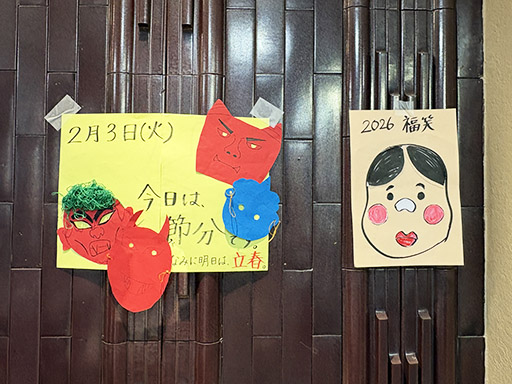 2月3日(火)
今日は、
節分です。
なみに明日は、立春。
2026 福笑